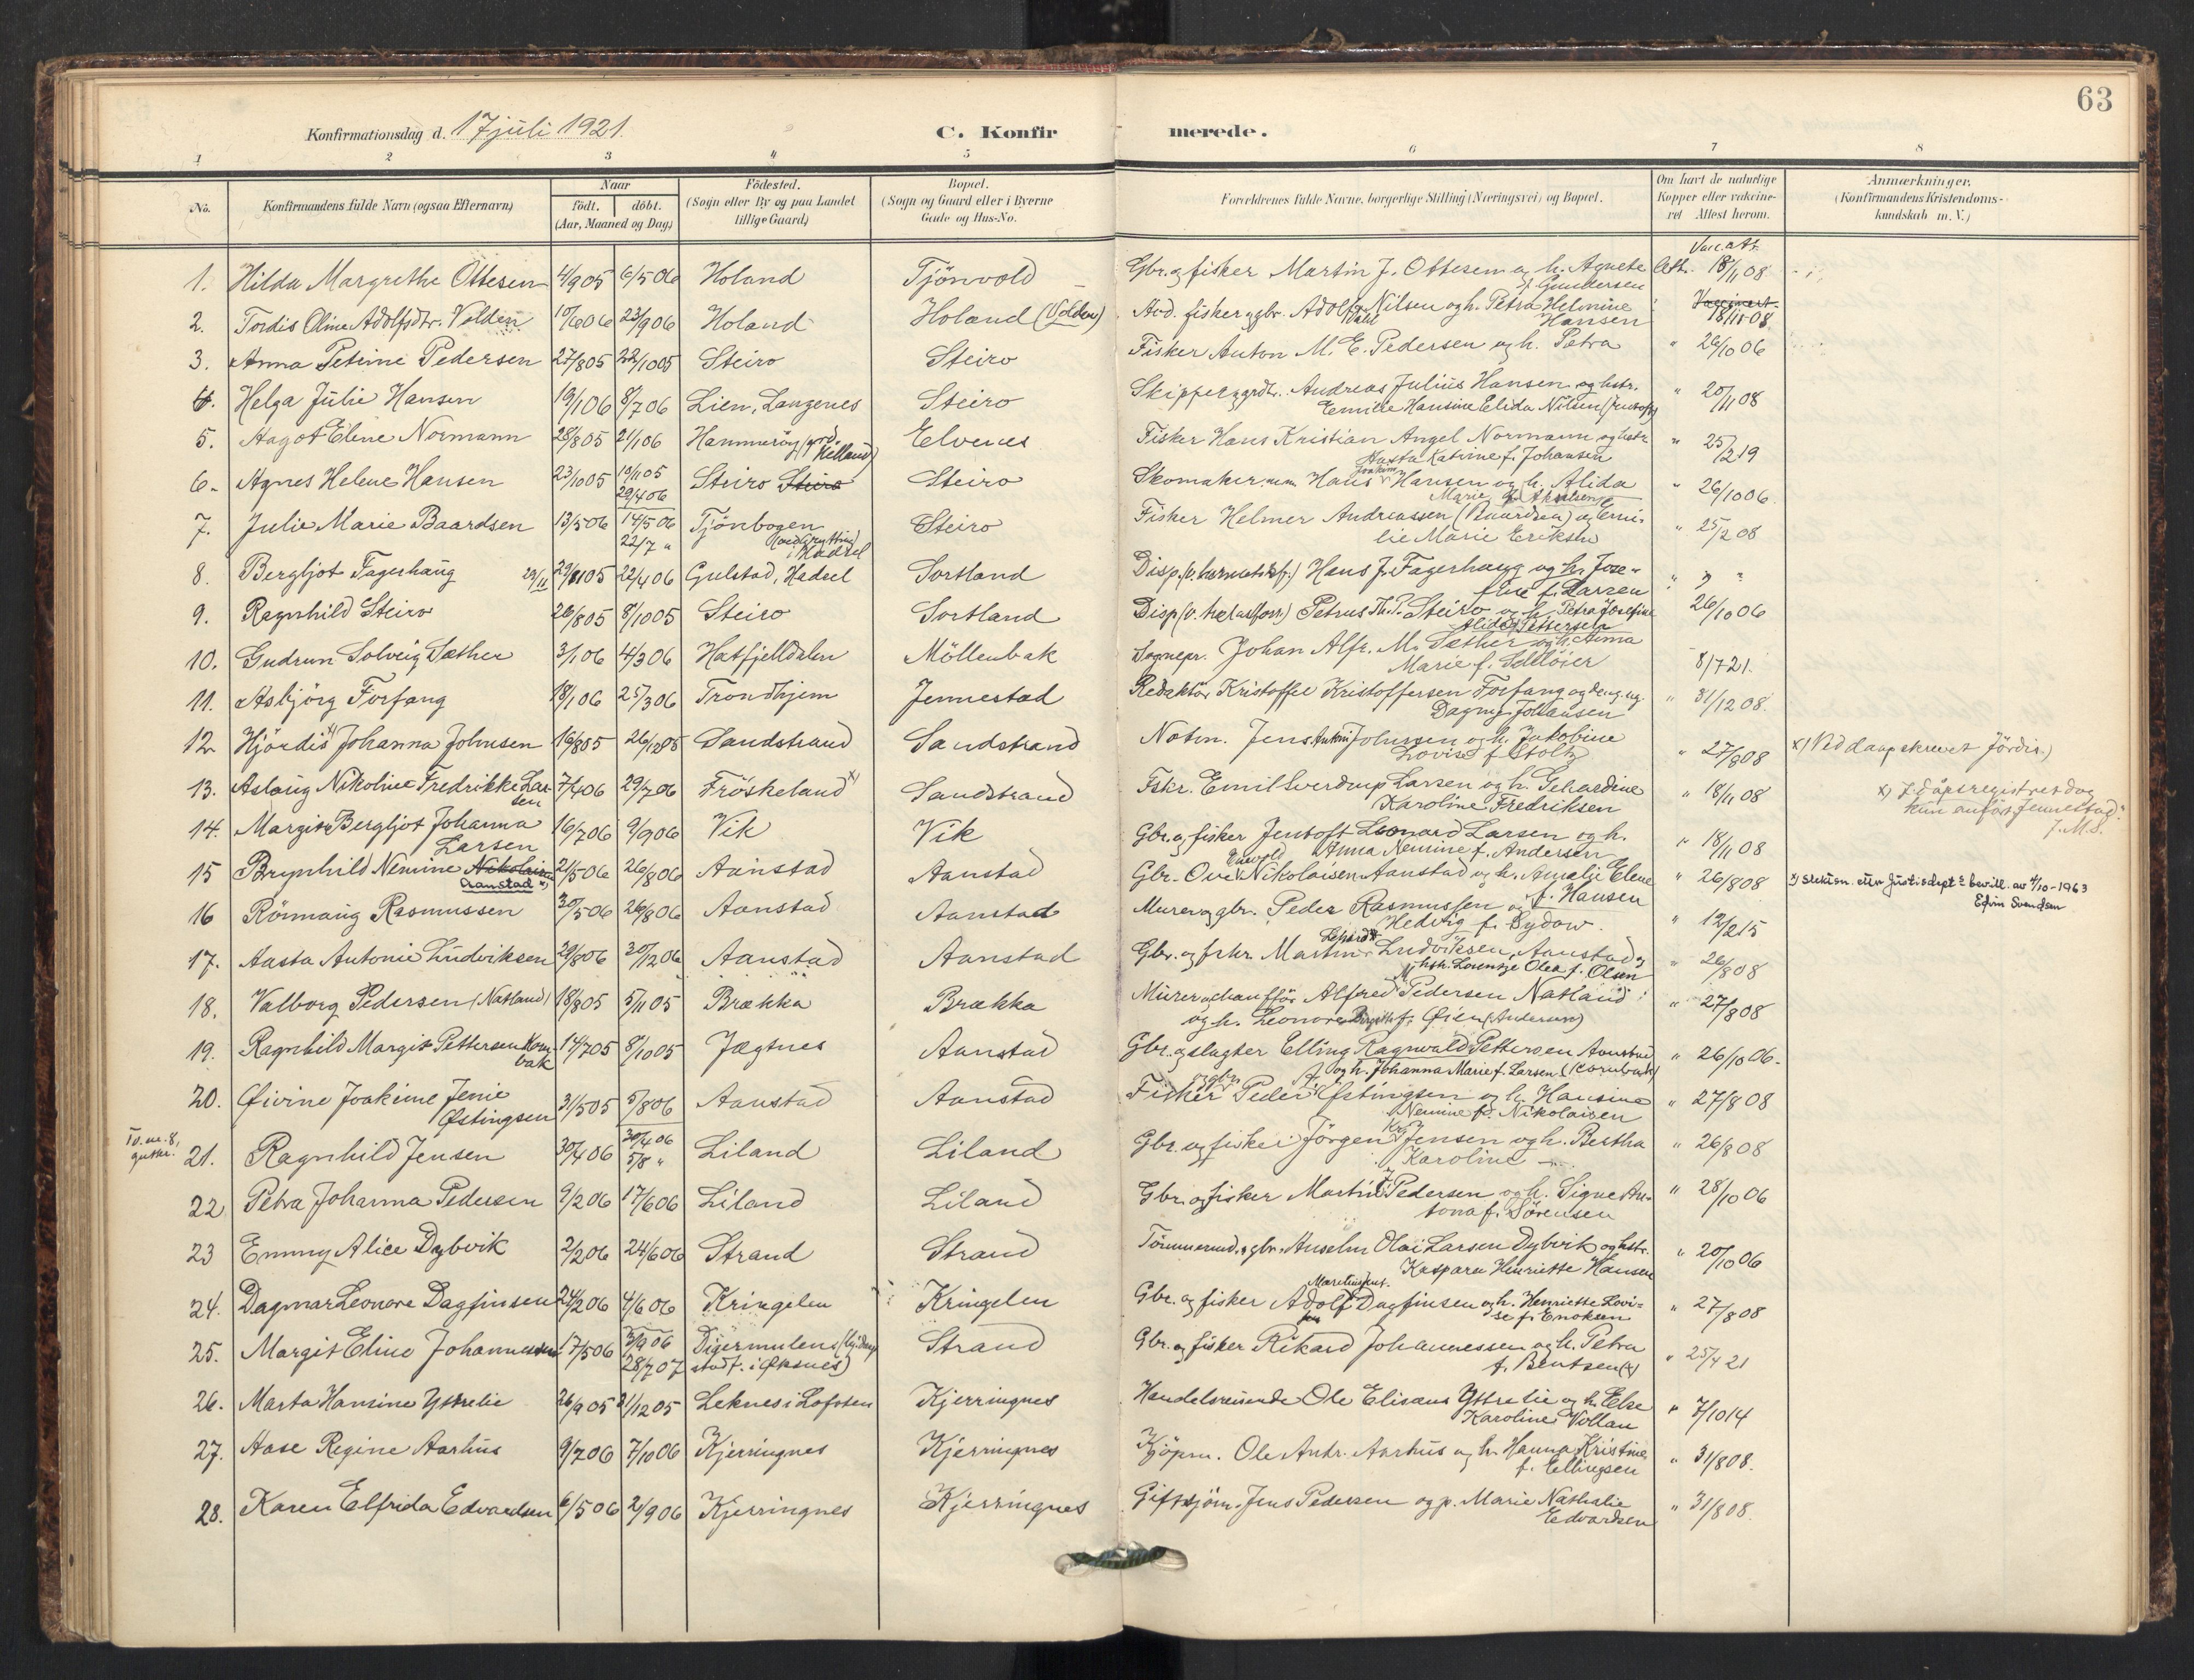 63
Konfirmationsdag d. 17 juli 1921.
C. Konfirmerede.
1 2 3 4 5 6 7 8
No.
Konfirmandens fulde Navn (ogsaa Efternavn)
Naar
födt. döbt.
(Aar, Maaned og Dag)
Födested.
(Sogn eller By og paa Landet
tillige Gaard)
Bopæl.
(Sogn og Gaard eller i Byerne
Gade og Hus-No.
Forældrenes fulde Navne, borgerlige Stilling (Næringsvei) og Bopæl.
Om havt de naturlige
Kopper eller vakcine-
ret Attest herom.
Anmærkninger.
(Konfirmandens Kristendoms-
kundskab m. V.)
Vacc. att.
1. Hilda Margrethe Ottesen 4/9 05 6/5 06 Holand Tjönvold Gbr. og fisker Martin J. Ottesen og h. Agnete Att. 18/11 08
f. Gundersen
2. Tordis Oline Adolfsdtr. Volden 10/6 06 23/9 06 Holand Holand (Volden) Avd. fisker og gbr. Adolf Nilsen og h. Petra Helmine
Hansen 18/11 08
3. Anna Petrine Pedersen 27/8 05 22/10 05 Steiro Steiro Fisker Anton M. E. Pedersen og h. Petra " 26/10 06
4. Helga Julie Hansen 19/1 06 8/7 06 Lien, Langenes Steiro Skipper og grdbr. Andreas Julius Hansen og hstr. " 20/11 08
Emilie Hansine Elida Nilsen (Jentoft)
5. Aagot Elene Normann 28/8 05 21/1 06 Hammeröy Elvenes Fisker Hans Kristian Angel Normann og hstr. " 25/2 19
Aasta Katrine f. Johansen
6. Agnes Helene Hansen 23/10 05 19/11 05 Steiro Steiro Steiro Skomaker m.m. Hans Joakim Hansen og h. Alida " 26/10 06
29/4 06 Marie f. Akselsen
7. Julie Marie Baardsen 13/5 06 14/5 06 Tjönbogen Steiro Fisker Helmer Andreassen (Baardsen) og Emi- " 25/2 08
22/7 " (ved Grytting) i Hadsel lie Marie Eriksen
8. Bergljot Fagerhaug 29/11 05 22/4 06 Gulstad, Hadsel Sortland Disp. Hans J. Fagerhaug og h. Jose- " " "
fine f. Larsen
9. Ragnhild Steiro 26/8 05 8/10 05 Steiro Sortland Disp. Petrus Th. P. Steiro og h. Petra Josefine 26/10 06
Alida Pettersen
10. Gudrun Solveig Sæther 3/1 06 4/3 06 Hatfjelldalen Möllenbak Sognepr. Johan Alfr. M. Sæther og h. Anna 8/7 21.
Marie f. Seltlöier
11. Asbjörg Forfang 18/1 06 25/3 06 Trondhjem Jennestad Redaktör Kristoffer Kristoffersen Forfang og " 31/12 08.
Dagny Johansen
12. Hjördis x) Johanna Johnsen 16/8 05 26/12 05 Sandstrand Sandstrand Notbr. Jens Anton Johnsen og h. Jakobine " 27/8 08 x) Ved daap skrevet Jördis.)
Lovise f. Stoltz
13. Aslaug Nikoline Fredrikke Lar- 7/4 06 29/7 06 Fröskeland x) Sandstrand Fskr. Emil Sverdrup Larsen og h. Geraldine " 18/11 08 x) I dåpsregistret dog
sen Karoline Fredriksen kun anfört "Jennestad".
J. M. S.
14. Margit Bergljot Johanna 16/7 06 9/9 06 Vik Vik Gbr. og fisker Jentoft Leonard Larsen og h. " 18/11 08
Larsen Anna Nemine f. Andersen
15 Brynhild Nemine Nikolaisen 21/5 06 26/8 06 Aanstad Aanstad Gbr. Ove Nikolaisen Aanstad og h. Amalie Elene " 26/8 08 x) slektsn. etter Justisdept.s bevill. av 4/10-1963
Aanstad x) f. Hansen Edvin Svendsen
16 Rönnaug Rasmussen 30/5 06 26/8 06 Aanstad Aanstad Murer og gbr. Peder Rasmussen og " 12/2 15
Hedvig f. Sydow.
17. Aasta Antonie Ludviksen 29/8 06 30/12 06 Aanstad Aanstad Gbr. og fskr. Martin Ludviksen, Aanstad og " 26/8 08
hstr. Lorentze Olea f. Olsen
18. Valborg Pedersen (Natland) 18/8 05 5/11 05 Brækka Brækka Murer og chaufför Alfred M. Pedersen Natland " 27/8 08
og h. Leonore Birgitte f. Öien (Andersen)
19. Ragnhild Margit Pettersen Korn- 14/7 05 8/10 05 Jægtnes Aanstad Gbr. og slagter Elling Ragnvald Pettersen Aanstad " 26/10 06.
bak og h. Johanna Marie f. Larsen (Kornbak)
20. Öivine Joakime Jenie 31/5 05 5/8 06 Aanstad Aanstad Fisker og gbr. Peder A. Östingsen og h. Hansine " 27/8 08
Östingsen Nemine f. Nikolaisen
Tv. nr. 8, gutter. 21. Ragnhild Jensen 30/4 06 30/4 06 Liland Liland Gbr. og fisker Jörgen Kr. Jensen og h. Bertha " 26/8 08
5/8 " Karoline
22 Petra Johanna Pedersen 9/2 06 17/6 06 Liland Liland Gbr. og fisker Martin J. Pedersen og h. Signe An- " 28/10 06
tona f. Sörensen
23 Emmy Alice Dybvik 2/2 06 24/6 06 Strand Strand Tömmermd. og gbr. Anselm Olai Larsen Dybvik og hstr. " 20/10 06
Kaspara Henriette Hansen
24. Dagmar Leonore Dagfinsen 24/2 06 4/6 06 Kringelen Kringelen Gbr. og fisker Adolf Dagfinsen og h. Henriette Lovi- " 27/8 08
se f. Enoksen
25. Margit Eline Johannessen 17/5 06 3/9 06 Digermulen Strand Gbr. og fisker Rikard Johannessen og h. Petra " 25/4 21
28/7 07 stadf. i Öksnes) f. Bentsen (x)
26. Marta Hansine Yttrelie 26/9 05 31/12 05 Leknes i Lofoten Kjerringnes Handelsreisende Ole Elisæus Yttrelie og h. Else " 7/10 14
Karoline Vollan
27. Aase Regine Aarhus 9/7 06 7/10 06 Kjerringnes Kjerringnes Kjöpm. Ole Andr. Aarhus og h. Hanna Kristine " 31/8 08.
f. Ellingsen
28. Karen Elfrida Edvardsen 6/5 06 2/9 06 Kjerringnes Kjerringnes Gift sjöm. Jens Pedersen og p. Marie Nathalie " 31/8 08.
Edvardsen